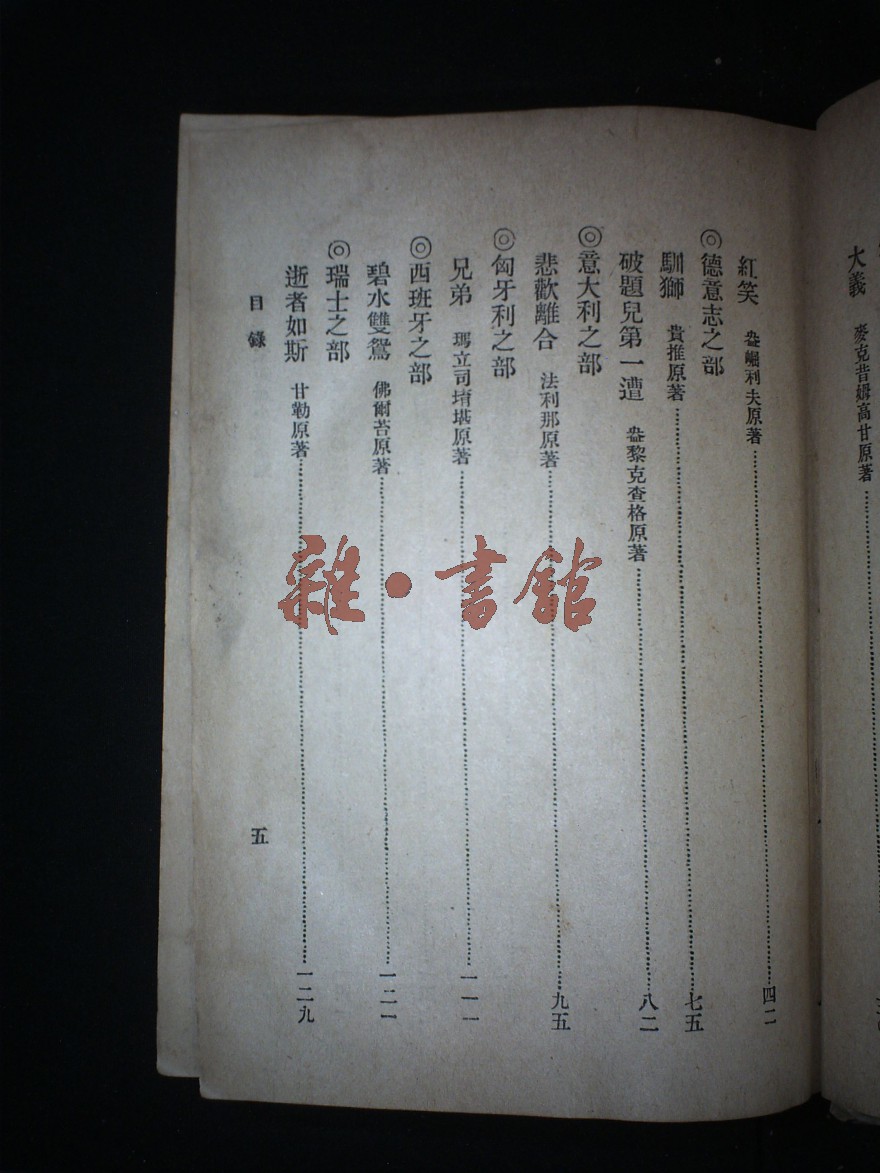 大義 麥克昔姆高甘原著
紅笑 盎崛利夫原著 四二
◎德意志之部
馴獅 貴推原著 七五
破題兒第一遭 盎黎克查格原著 八二
◎意大利之部
悲歡離合 法利那原著 九五
◎匈牙利之部
兄弟 瑪立司堉堪原著 一一一
◎西班牙之部
碧水雙鴛 佛爾苔原著 一二一
◎瑞士之部
逝者如斯 甘勒原著 一二九
目錄
五
雜·書館